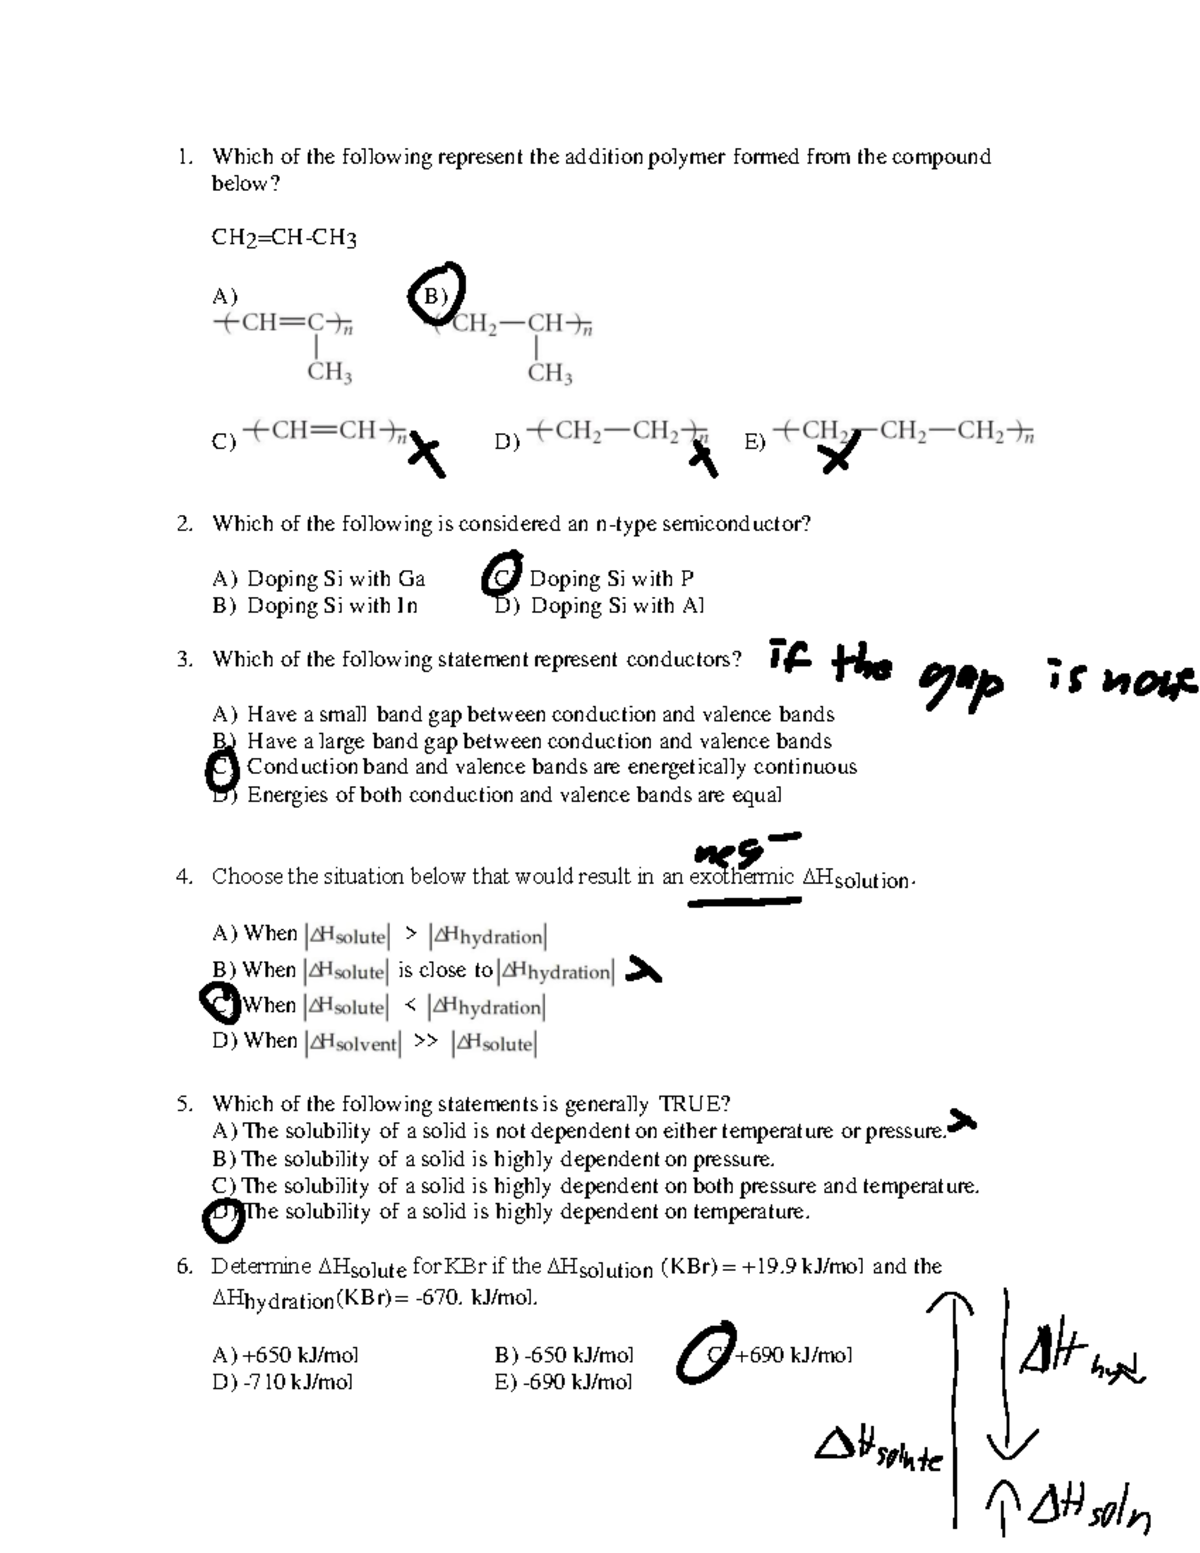 1. Which of the following represent the addition polymer formed from the compound
below?
CH2=CH-CH3
A) B)
CH=C n CH2—CH n
CH3 CH3
C) CH=CH n D) CH2—CH2 n E) CH2—CH2—CH2 n
2. Which of the following is considered an n-type semiconductor?
A) Doping Si with Ga C Doping Si with P
B) Doping Si with In D) Doping Si with Al
3. Which of the following statement represent conductors? if the gap is
A) Have a small band gap between conduction and valence bands
B) Have a large band gap between conduction and valence bands
C) Conduction band and valence bands are energetically continuous
D) Energies of both conduction and valence bands are equal
neg −
4. Choose the situation below that would result in an exothermic ΔHsolution.
A) When |ΔHsolute| > |ΔHhydration|
B) When |ΔHsolute| is close to |ΔHhydration|
C) When |ΔHsolute| < |ΔHhydration|
D) When |ΔHsolvent| >> |ΔHsolute|
5. Which of the following statements is generally TRUE?
A) The solubility of a solid is not dependent on either temperature or pressure.
B) The solubility of a solid is highly dependent on pressure.
C) The solubility of a solid is highly dependent on both pressure and temperature.
D) The solubility of a solid is highly dependent on temperature.
6. Determine ΔHsolute for KBr if the ΔHsolution (KBr) = +19.9 kJ/mol and the
ΔHhydration(KBr)= -670. kJ/mol.
A) +650 kJ/mol B) -650 kJ/mol C +690 kJ/mol
D) -710 kJ/mol E) -690 kJ/mol
ΔH hyd
ΔHsolute
ΔH soln